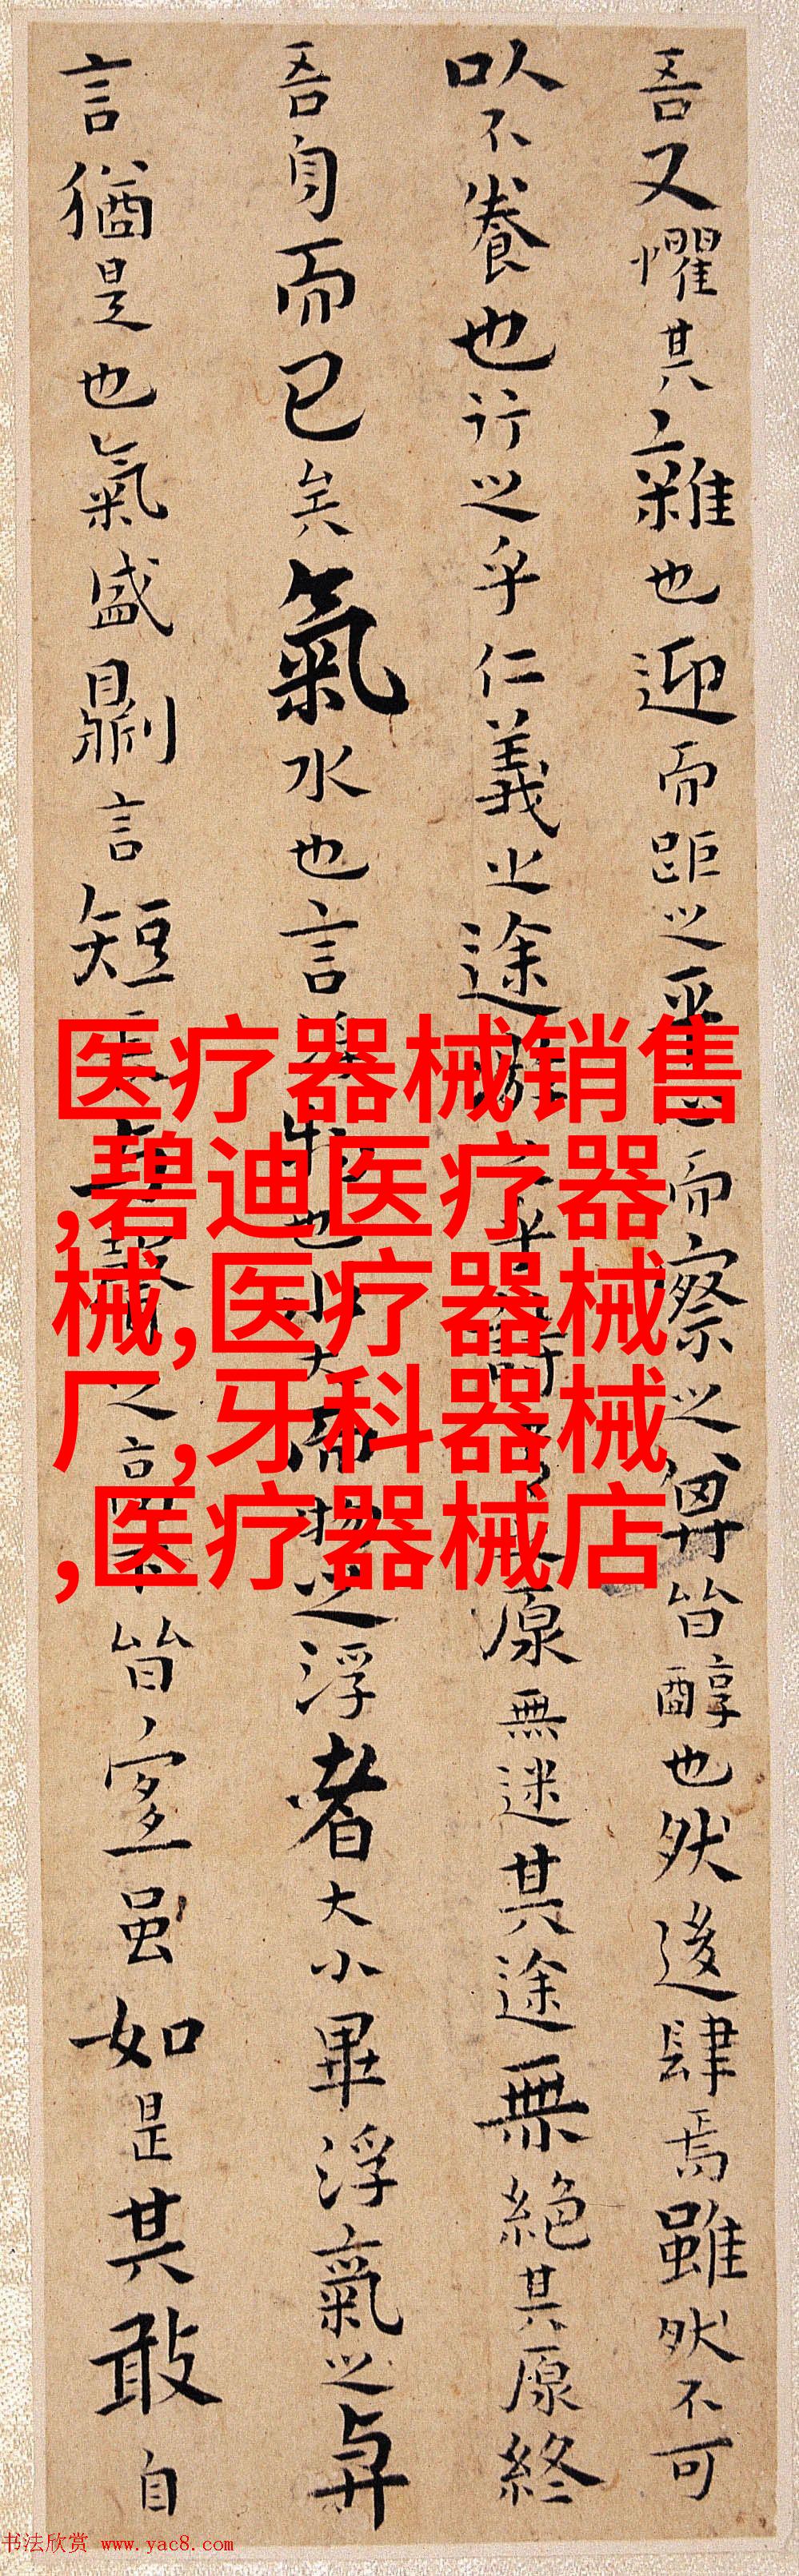 吾又懼其雜也迎而距之平而察之其皆醇也然後肆焉雖然不可
以不養也行之乎仁義之途游之乎詩原無迷其途無絕其原終
吾身而已矣氣水也言浮物也水大而物之浮者大小畢浮氣之與
言猶是也氣盛則言短長與聲之高下皆宜虽如是其敢自
医疗器械销售
,碧迪医疗器
械,医疗器械
厂,牙科器械
,医疗器械店
书法欣赏 www.yac8.com